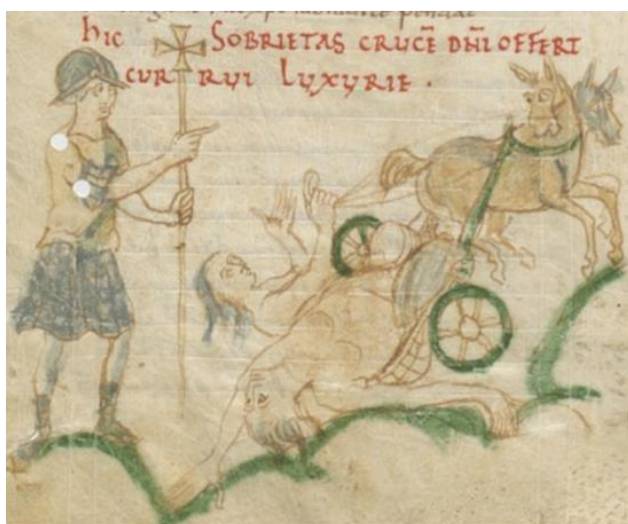 hic SOBRIETAS CRUCĒ DN̄I OFFERT
CURRUI LUXURIE ·